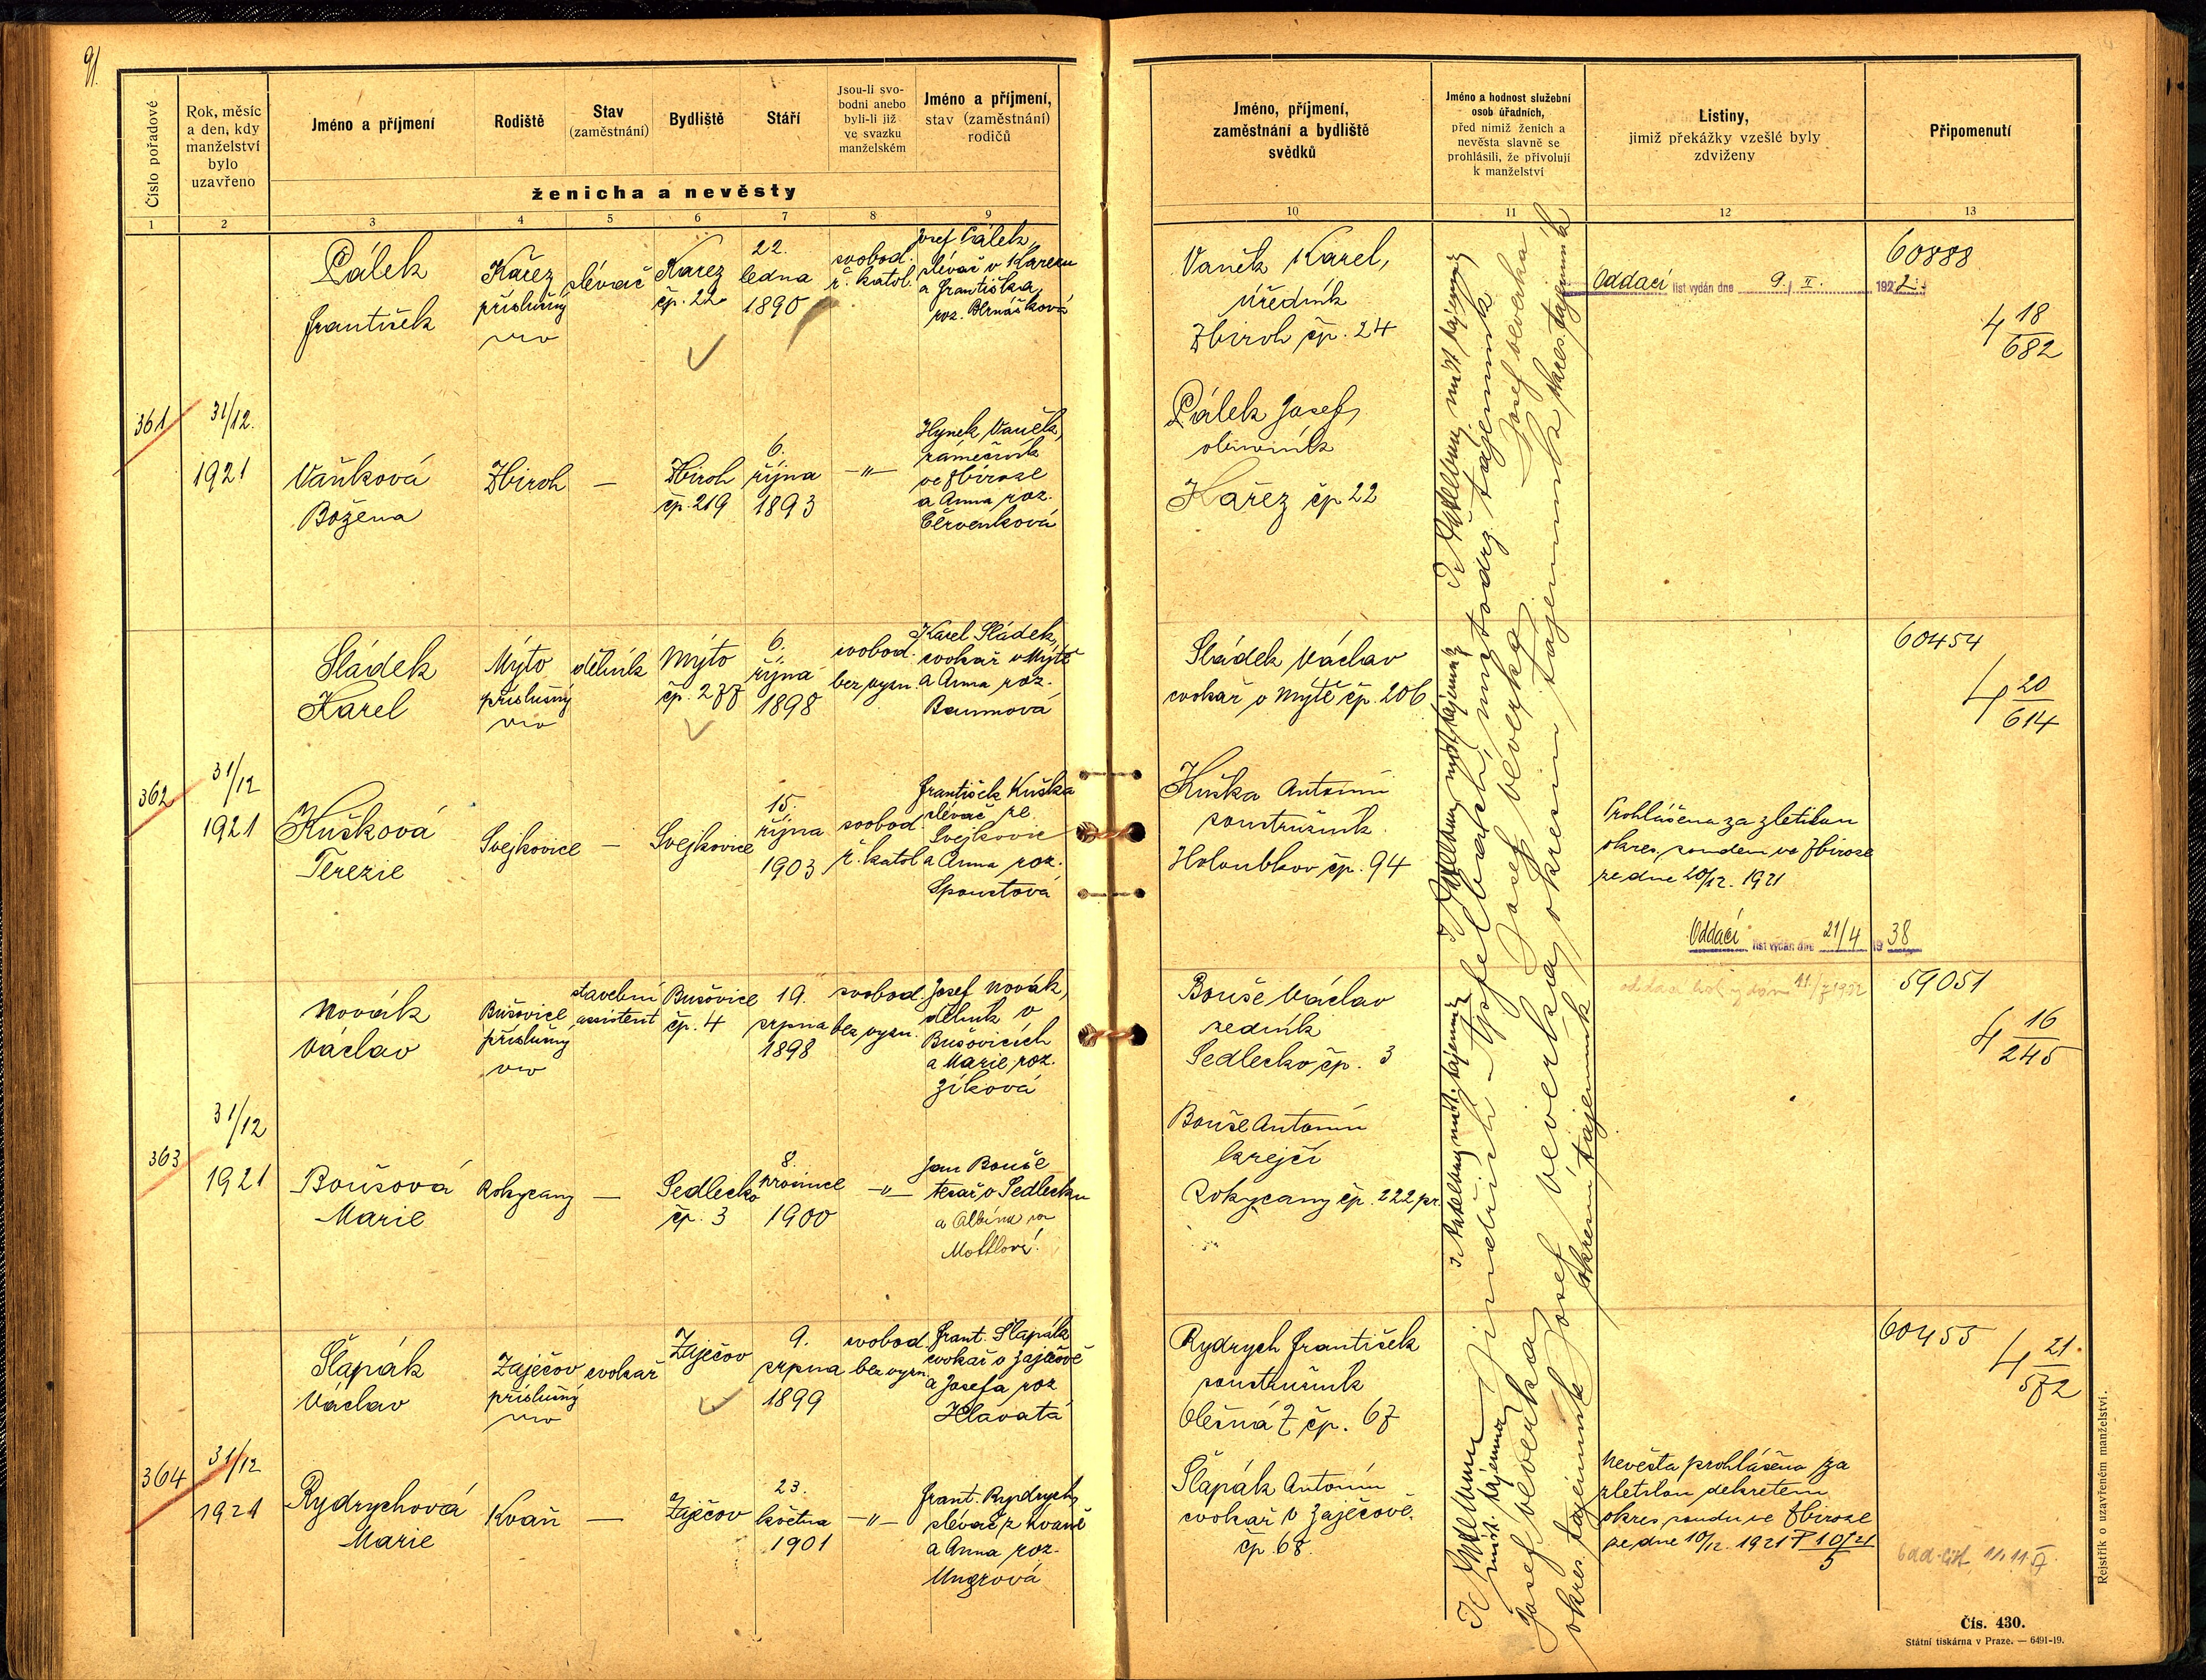 91.
Číslo pořadové
Rok, měsíc
a den, kdy
manželství
bylo
uzavřeno
Jméno a příjmení
Rodiště
Stav
(zaměstnání)
Bydliště
Stáří
Jsou-li svo-
bodni anebo
byli-li již
ve svazku
manželském
Jméno a příjmení,
stav (zaměstnání)
rodičů
ženicha a nevěsty
1 2 3 4 5 6 7 8 9
361
31/12.
1921
Pálek
František
Kařez
příslušný
slévač
Kařez
čp. 22
22.
ledna
1890
svobod.
ř. katol.
Josef Pálek,
slévač v Kařezu
a Františka
roz.
Vaňková
Božena
Zbiroh
—
Zbiroh
čp. 219
6.
října
1893
—"—
Hynek Vaněk,
zámečník
ve Zbiroze
a Anna roz.
Červenková
362
31/12
1921
Sládek
Karel
Mýto
příslušný
dělník
Mýto
čp. 277
6.
října
1898
svobod.
bez vyzn.
Karel Sládek,
cvokař v Mýtě
a Anna roz.
Baumová
Kušková
Terezie
Svejkovice
—
Svejkovice
15.
října
1903
svobod.
ř. katol
František Kuška
slévač ze
Svejkovic
a Anna roz.
Spoustová
363
31/12
1921
Novák
Václav
Bušovice
příslušný
stavební
assistent
Bušovice
čp. 4
19.
srpna
1898
svobod.
bez vyzn.
Josef Novák,
dělník v
Bušovicích
a Marie roz.
Zíková
Boušová
Marie
Rokycany
—
Sedlecko
čp. 3
8.
prosince
1900
—"—
Jan Bouše
tesař v Sedlecku
a Albína roz
Mottlová.
364
31/12
1921
Šlapák
Václav
Zaječov
příslušný
cvokař
Zaječov
9.
srpna
1899
svobod.
bez vyzn.
Frant. Šlapák
cvokař v Zaječově
a Josefa roz
Hlavatá
Rydrychová
Marie
Kvaň
—
Zaječov
23.
května
1901
—"—
Frant. Rydrych,
slévač z Kvaně
a Anna roz.
Ungrová
Jméno, příjmení,
zaměstnání a bydliště
svědků
Jméno a hodnost služební
osob úřadních,
před nimiž ženich a
nevěsta slavně se
prohlásili, že přivolují
k manželství
Listiny,
jimiž překážky vzešlé byly
zdviženy
Připomenutí
10 11 12 13
Vaněk Karel,
úředník
Zbiroh čp. 24
Pálek Josef,
Kařez čp 22
Oddací list vydán dne 9./II. 1922.
60888
4 18
682
Sládek Václav
cvokař v Mýtě čp. 206
Kuška Antonín
soustružník
Holoubkov čp. 94
Prohlášena za zletilou
okres. soudem ve Zbiroze
ze dne 20/12. 1921
Oddací list vydán dne 21/4 1938
60454
4 20
614
Bouše Václav
zedník
Sedlecko čp. 3
Bouše Antonín
krejčí
Rokycany čp. 222 pr.
59051
4 16
245
Rydrych František
soustružník
Olešná Z čp. 67
Šlapák Antonín
cvokař v Zaječově.
čp. 68.
Nevěsta prohlášena za
zletilou dekretem
okres. soudu ve Zbiroze
ze dne 10/12. 1921 P 10/21
5
60455
4 21.
572
Josef Veverka
okresní tajemník
Josef Veverka,
okresní tajemník
Josef Veverka,
Josef Veverka
okres. tajemník
Rejstřík o uzavřeném manželství.
Čís. 430.
Státní tiskárna v Praze. — 6491-19.